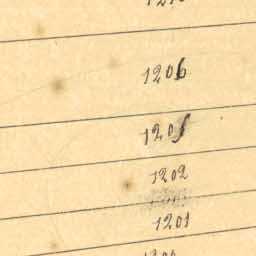 1206
1205
1202
1201